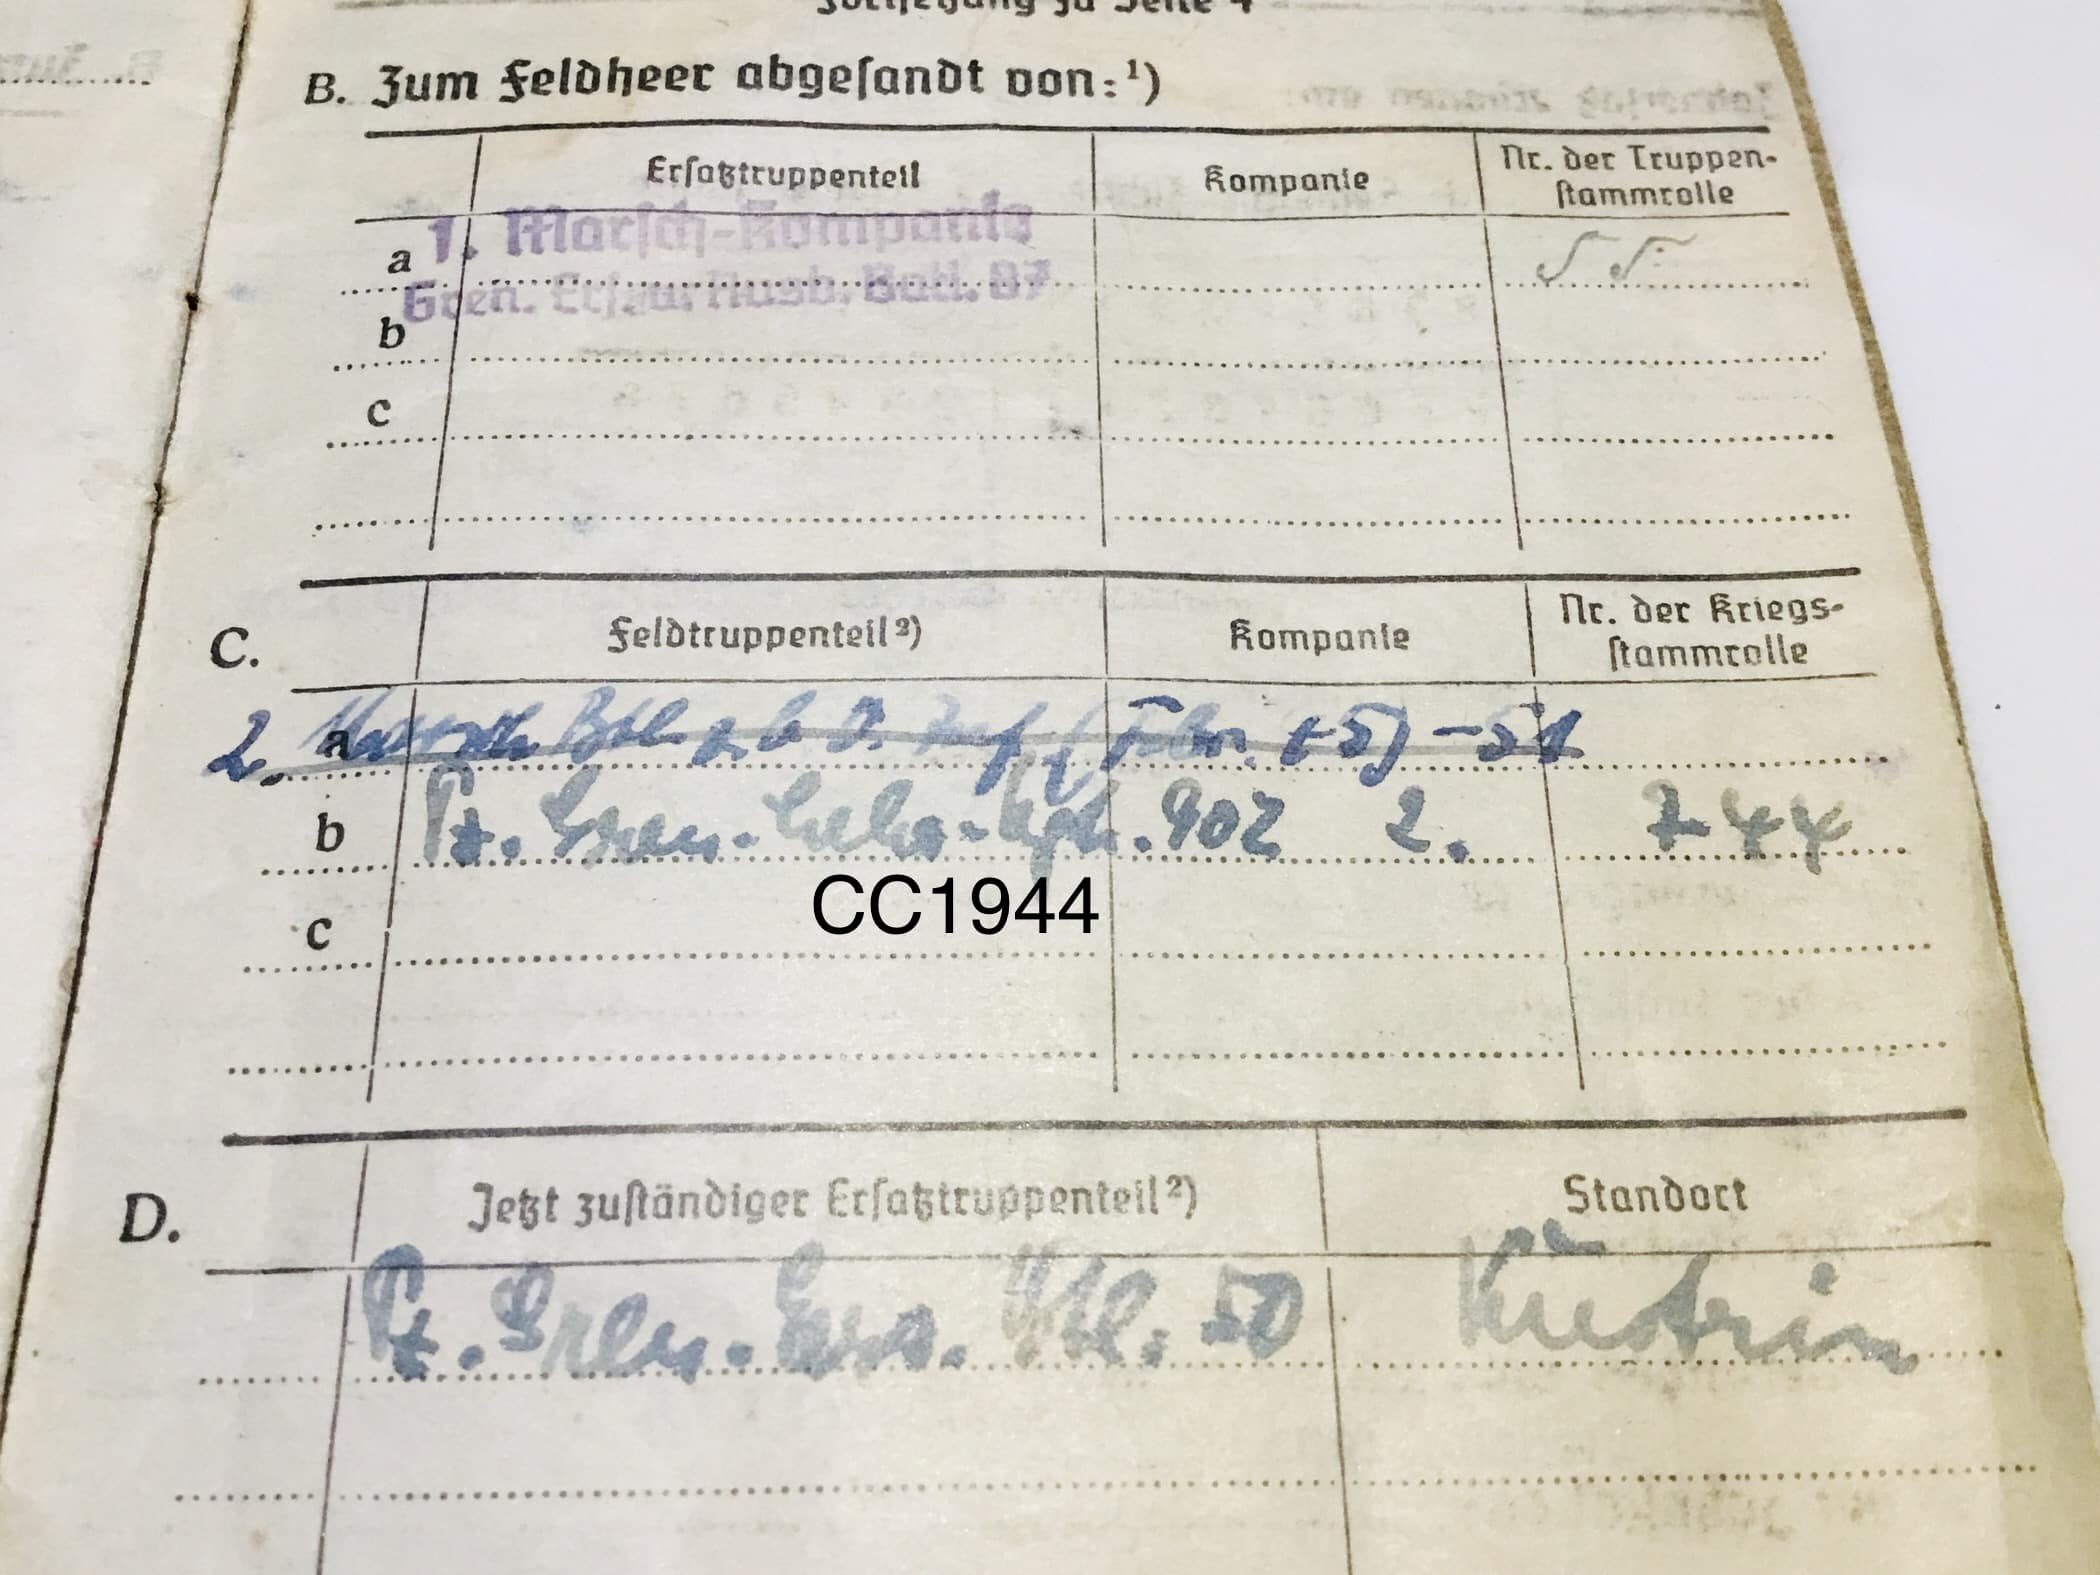 Fortsetzung zu Seite 4
B. Zum Feldheer abgesandt von:¹)
Ersatztruppenteil Kompanie Nr. der Truppen-
stammrolle
1. Marsch-Kompanie
a
Gren. Ers. u. Ausb. Batl. 87
b
c
C. Feldtruppenteil²) Kompanie Nr. der Kriegs-
stammrolle
2. Marsch Btl. z. b. V.
a
b Pz. Gren. Lehr-Rgt. 902 2. 744
CC1944
c
D. Jetzt zuständiger Ersatztruppenteil²) Standort
Pz. Gren. Ers. Btl. 50 Küstrin